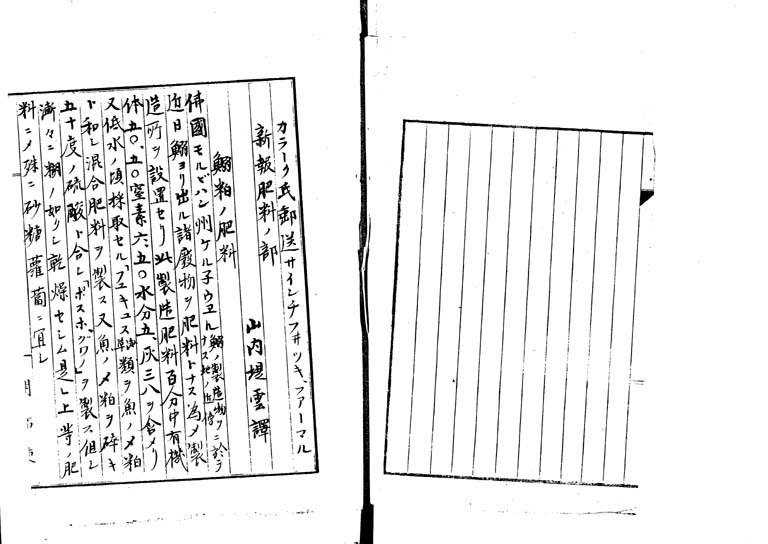 カラーク氏郵送サインチフ井ツキ、ファーマル
新報肥料ノ部
山内堤雲譯
鰯粕ノ肥料
佛國モルビハン州ケル子ウヱル鰯ノ製造物ヲナス地ノ近傍ニ於テ
近日鰯ヨリ出ル諸廢物ヲ肥料トナス為メ製
造所ヲ設置セリ此製造肥料百分中有機
体五〇、五〇窒素六、五〇水分五、灰三八ヲ含メリ
又低水ノ頃採取セル「フユキュス海草類ヲ魚ノメ粕
ト和し混合肥料ヲ製ス又魚ノメ粕ヲ碎キ
五十度ノ硫酸ト合し「ポスポグワノ」ヲ製ス但し
漸々ニ糊ノ如クし乾燥セシム是レ上等ノ肥
料ニメ殊ニ砂糖蘿蔔ニ宜し